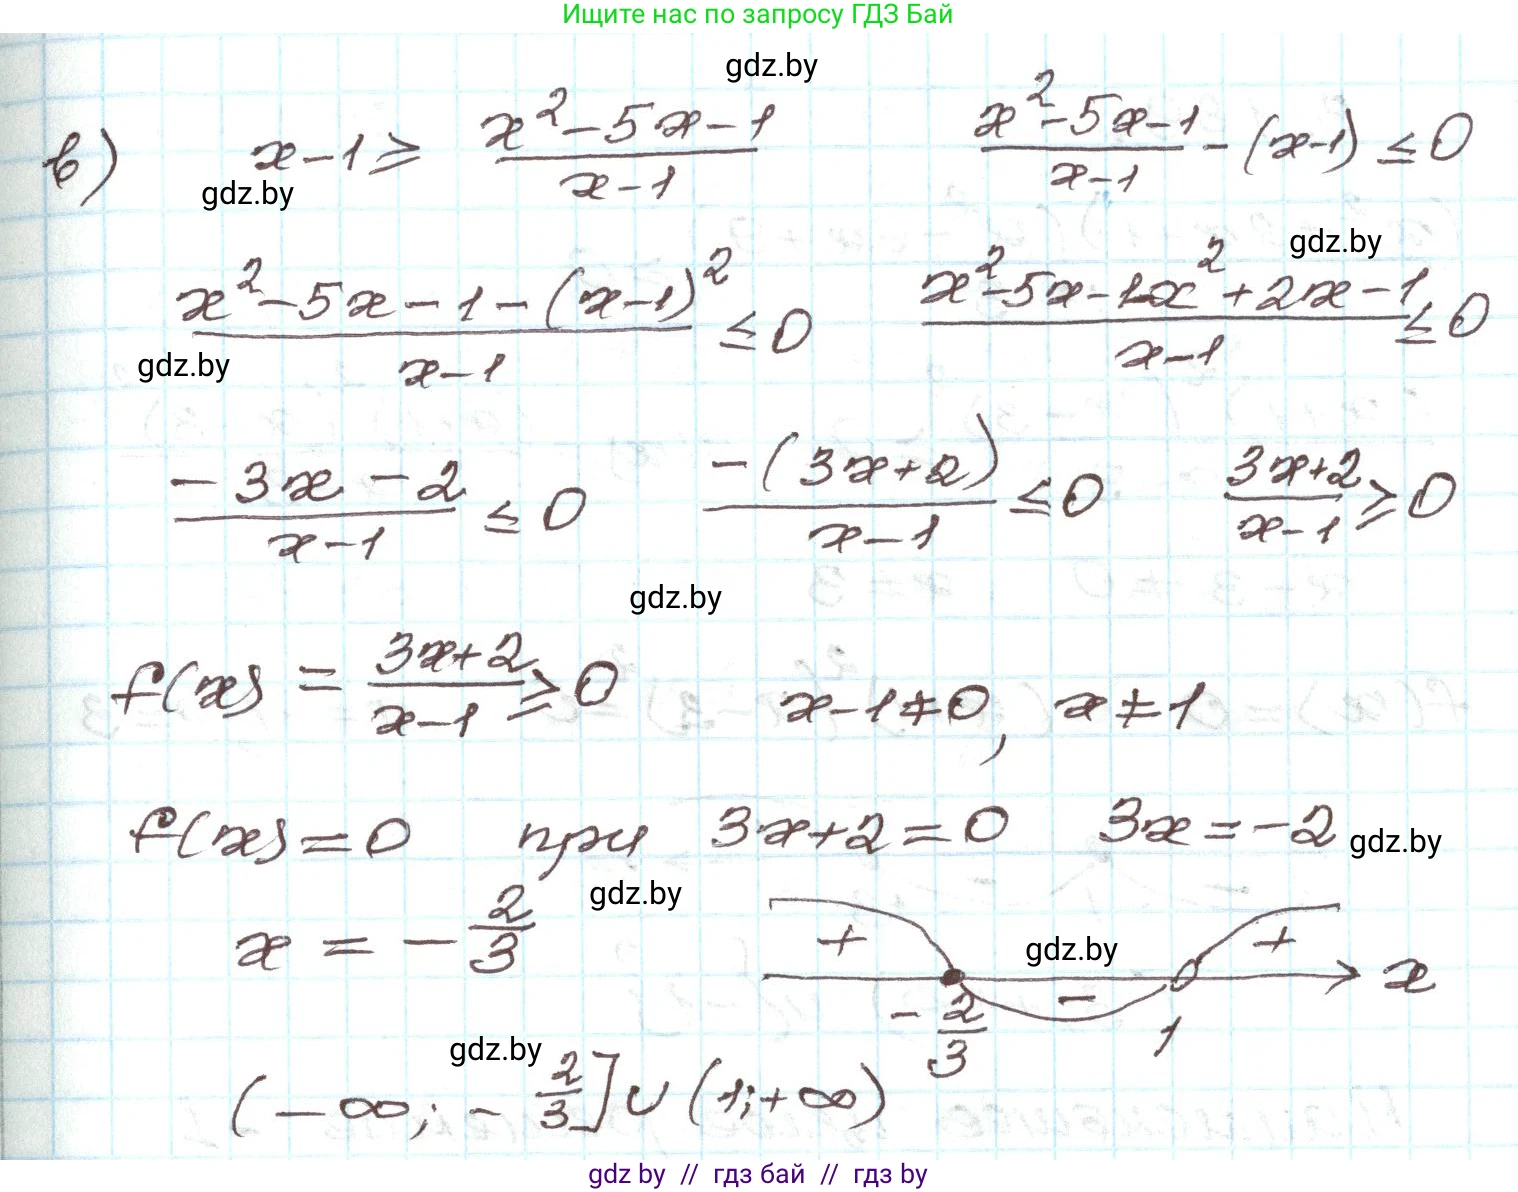 Ищите нас по запросу ГДЗ Бай
gdz.by
в) x-1 ≥ (x²-5x-1)/(x-1) (x²-5x-1)/(x-1) - (x-1) ≤ 0
gdz.by
gdz.by
(x²-5x-1-(x-1)²)/(x-1) ≤ 0 (x²-5x-1-x²+2x-1)/(x-1) ≤ 0
gdz.by
(-3x-2)/(x-1) ≤ 0 (-(3x+2))/(x-1) ≤ 0 (3x+2)/(x-1) ≥ 0
gdz.by
f(x) = (3x+2)/(x-1) ≥ 0 x-1≠0, x≠1
f(x)=0 при 3x+2=0 3x=-2
gdz.by
gdz.by
x = -2/3
+ - + x
gdz.by
-2/3 1
gdz.by
(-∞; -2/3] ∪ (1; +∞)
gdz.by // гдз бай // гдз by